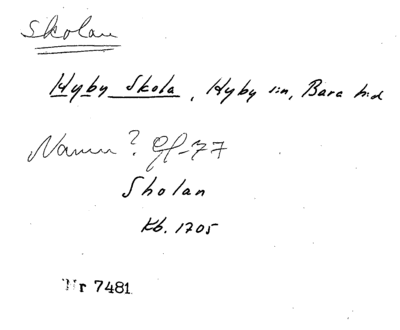 Skolan
Hyby Skola, Hyby sn, Bara hd
Namn? Gf-77
Skolan
Kb. 1705
Nr 7481